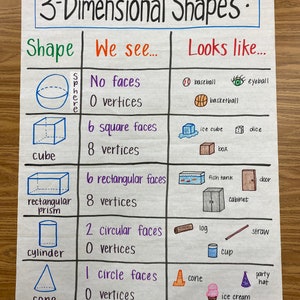 3-Dimensional Shapes.
Shape We see... Looks like...
sphere
No faces
0 vertices
baseball eyeball
basketball
cube
6 square faces
8 vertices
ice cube dice
box
rectangular
prism
6 rectangular faces
8 vertices
fish tank door
cabinet
cylinder
2 circular faces
0 vertices
log straw
cup
cone
1 circle faces
0 vertices
cone party
hat
ice cream